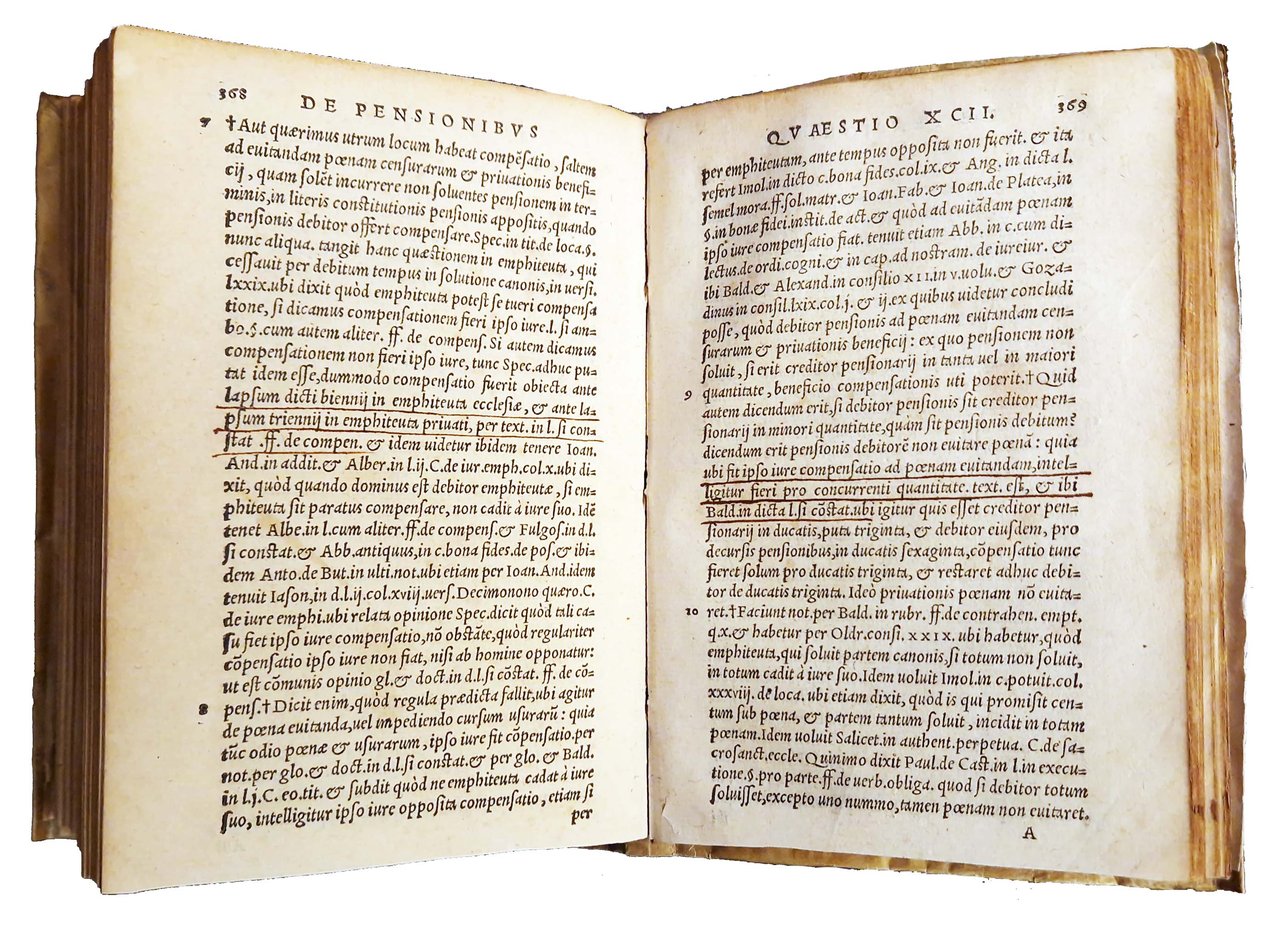 368
DE PENSIONIBVS
7 †Aut quærimus utrum locum habeat compẽsatio, saltem
ad euitandam pœnam censurarum & priuationis benefi=
cij, quam solẽt incurrere non soluentes pensionem in ter=
minis, in literis constitutionis pensionis appositis, quando
pensionis debitor offert compensare. Spec. in tit. de loca. §.
nunc aliqua. tangit hanc quæstionem in emphiteuta, qui
cessauit per debitum tempus in solutione canonis, in uersi.
lxxix. ubi dixit quòd emphiteuta potest se tueri compensa
tione, si dicamus compensationem fieri ipso iure. l. si am=
bo. §. cum autem aliter. ff. de compens. Si autem dicamus
compensationem non fieri ipso iure, tunc Spec. adhuc pu=
tat idem esse, dummodo compensatio fuerit obiecta ante
lapsum dicti biennij in emphiteuta ecclesiæ, & ante la=
psum triennij in emphiteuta priuati, per text. in l. si con=
stat .ff. de compen. & idem uidetur ibidem tenere Ioan.
And. in addit. & Alber. in l. ij. C. de iur. emph. col. x. ubi di=
xit, quòd quando dominus est debitor emphiteutæ, si em=
phiteuta sit paratus compensare, non cadit à iure suo. Idẽ
tenet Albe. in l. cum aliter. ff. de compens. & Fulgos. in d. l.
si constat. & Abb. antiquus, in c. bona fides. de pos. & ibi=
dem Anto. de But. in ulti. not. ubi etiam per Ioan. And. idem
tenuit Iason, in d. l. ij. col. xviij. uers. Decimonono quæro. C.
de iure emphi. ubi relata opinione Spec. dicit quòd tali ca=
su fiet ipso iure compensatio, nõ obstãte, quòd regulariter
cõpensatio ipso iure non fiat, nisi ab homine opponatur:
ut est cõmunis opinio gl. & doct. in d. l. si cõstat. ff. de cõ=
8 pens. †Dicit enim, quòd regula prædicta fallit, ubi agitur
de pœna euitanda, uel impediendo cursum usurarũ: quia
tũc odio pœnæ & usurarum, ipso iure fit cõpensatio. per
not. per glo. & doct. in d. l. si constat. & per glo. & Bald.
in l. j. C. eo. tit. & subdit quòd ne emphiteuta cadat à iure
suo, intelligitur ipso iure opposita compensatio, etiam si
per
QVAESTIO XCII.
369
per emphiteutam, ante tempus opposita non fuerit. & ita
refert Imol. in dicto c. bona fides. col. ix. & Ang. in dicta l.
semel mora. ff. sol. matr. & Ioan. Fab. & Ioan. de Platea, in
§. in bonæ fidei. instit. de act. & quòd ad euitãdam pœnam
ipso iure compensatio fiat. tenuit etiam Abb. in c. cum di=
lectus. de ordi. cogni. & in cap. ad nostram. de iureiur. &
ibi Bald. & Alexand. in consilio XII. in v. uolu. & Goza=
dinus in consil. lxix. col. j. & ij. ex quibus uidetur concludi
posse, quòd debitor pensionis ad pœnam euitandam cen=
surarum & priuationis beneficij: ex quo pensionem non
soluit, si erit creditor pensionarij in tanta uel in maiori
9 quantitate, beneficio compensationis uti poterit. †Quid
autem dicendum erit, si debitor pensionis sit creditor pen=
sionarij in minori quantitate, quàm sit pensionis debitum?
dicendum erit pensionis debitorẽ non euitare pœnã: quia
ubi fit ipso iure compensatio ad pœnam euitandam, intel=
ligitur fieri pro concurrenti quantitate. text. est, & ibi
Bald. in dicta l. si cõstat. ubi igitur quis esset creditor pen=
sionarij in ducatis, puta triginta, & debitor eiusdem, pro
decursis pensionibus, in ducatis sexaginta, cõpensatio tunc
fieret solum pro ducatis triginta, & restaret adhuc debi=
tor de ducatis triginta. Ideò priuationis pœnam nõ euita=
10 ret. †Faciunt not. per Bald. in rubr. ff. de contrahen. empt.
q. x. & habetur per Oldr. consi. XXIX. ubi habetur, quòd
emphiteuta, qui soluit partem canonis, si totum non soluit,
in totum cadit à iure suo. Idem uoluit Imol. in c. potuit. col.
xxxviij. de loca. ubi etiam dixit, quòd is qui promisit cen=
tum sub pœna, & partem tantum soluit, incidit in totam
pœnam. Idem uoluit Salicet. in authent. perpetua. C. de sa=
crosanct. eccle. Quinimo dixit Paul. de Cast. in l. in execu=
tione. §. pro parte. ff. de uerb. obliga. quod si debitor totum
soluisset, excepto uno nummo, tamen pœnam non euitaret.
A